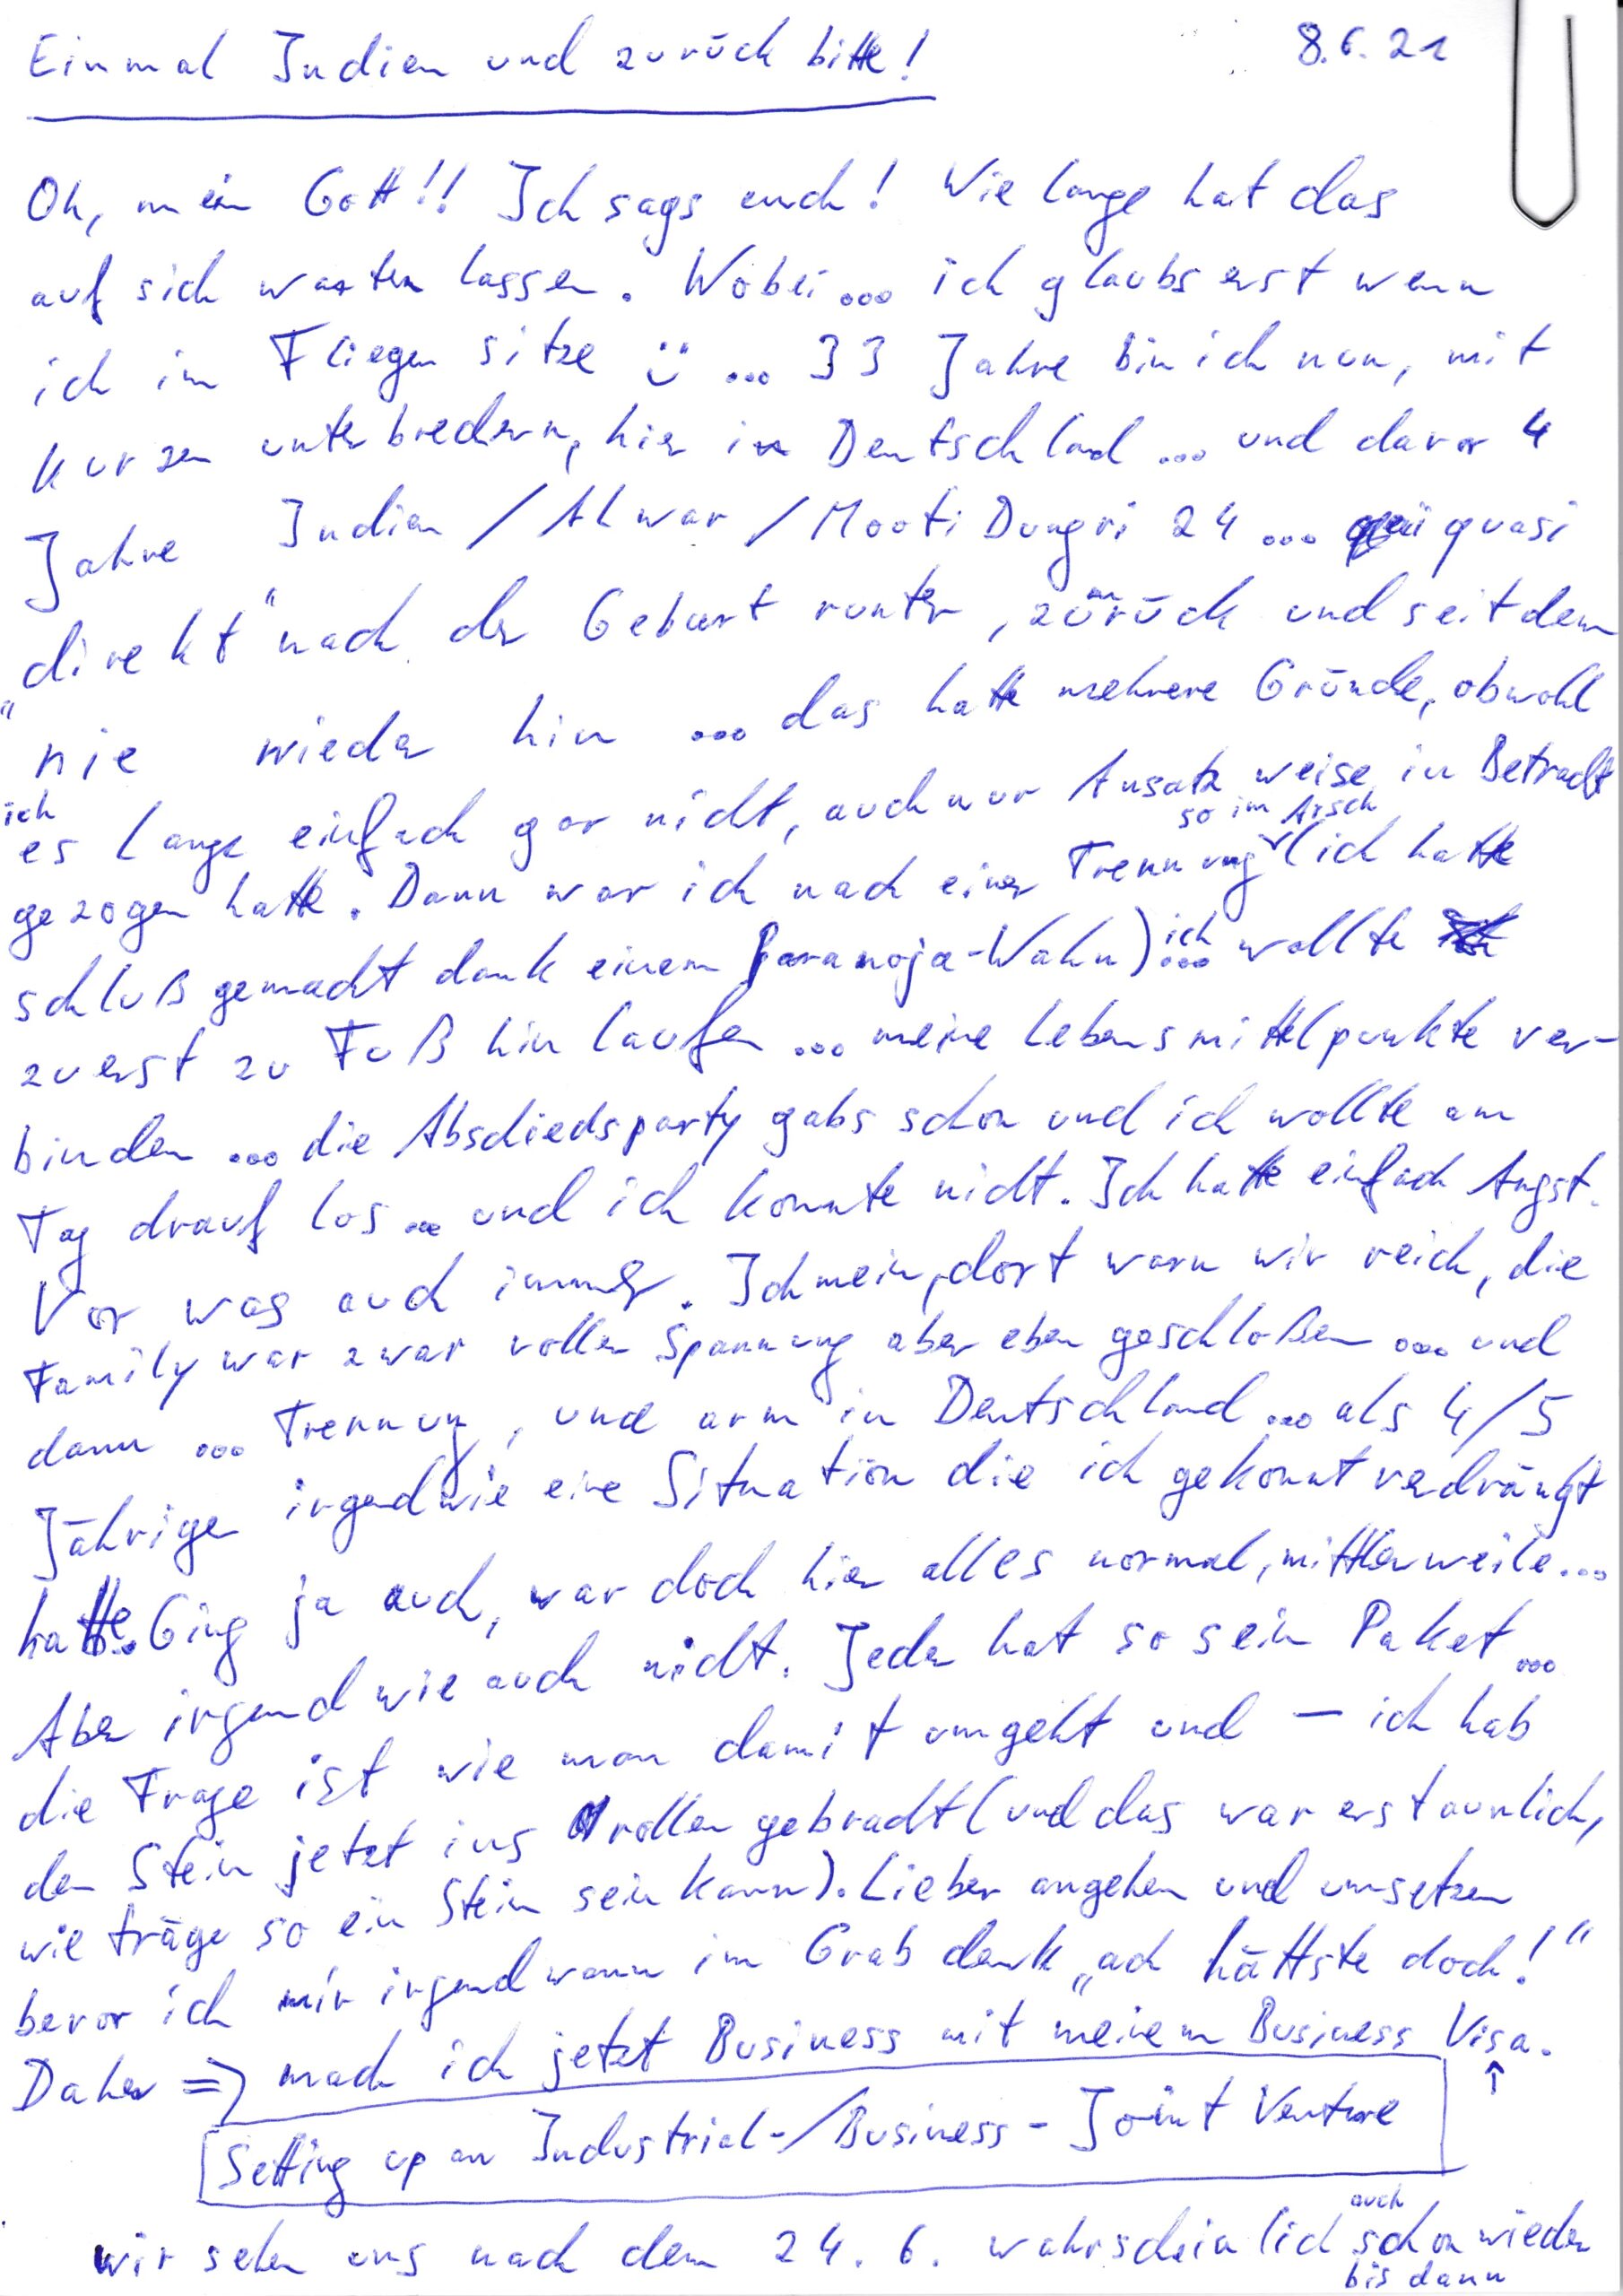 Einmal Indien und zurück bitte! 8.6.21
Oh, mein Gott!! Ich sags euch! Wie lange hat das
auf sich warten lassen. Wobei ... ich glaubs erst wenn
ich im Flieger sitze ü ... 33 Jahre bin ich nun, mit
kurzen unterbrechern, hier in Deutschland ... und davor 4
Jahre Indien / Alwar / Mooti Dungri 24 ... quasi
"direkt" nach der Geburt runter, zurück und seitdem
nie wieder hin ... das hatte mehrere Gründe, obwohl
ich
es lange einfach gar nicht, auch nur Ansatzweise in Betracht
so im Arsch
gezogen hatte. Dann war ich nach einer Trennung (ich hatte
schluß gemacht dank einem Paranoja-Wahn) ... ich wollte
zuerst zu Fuß hin laufen ... meine Lebensmittelpunkte ver-
binden ... die Abschiedsparty gabs schon und ich wollte am
Tag drauf los ... und ich konnte nicht. Ich hatte einfach Angst.
Vor was auch immer. Ich mein, dort warn wir reich, die
Family war zwar voller Spannung aber eben geschloßen ... und
dann ... Trennung, und arm in Deutschland ... als 4/5
Jähriger irgendwie eine Situation die ich gekonnt verdrängt
hatte. Ging ja auch, war doch hier alles normal, mittlerweile...
Aber irgendwie auch nicht. Jeder hat so sein Paket ...
die Frage ist wie man damit umgeht und – ich hab
den Stein jetzt ins rollen gebracht (und das war erstaunlich,
wie träge so ein Stein sein kann). Lieber angehen und umsetzen
bevor ich mir irgendwann im Grab denk „ach hättste doch!“
Daher => mach ich jetzt Business mit meinem Business Visa.
↑
Setting up an Industrial-/Business-Joint Venture
auch
wir sehen uns nach dem 24.6. wahrscheinlich schon wieder
bis dann